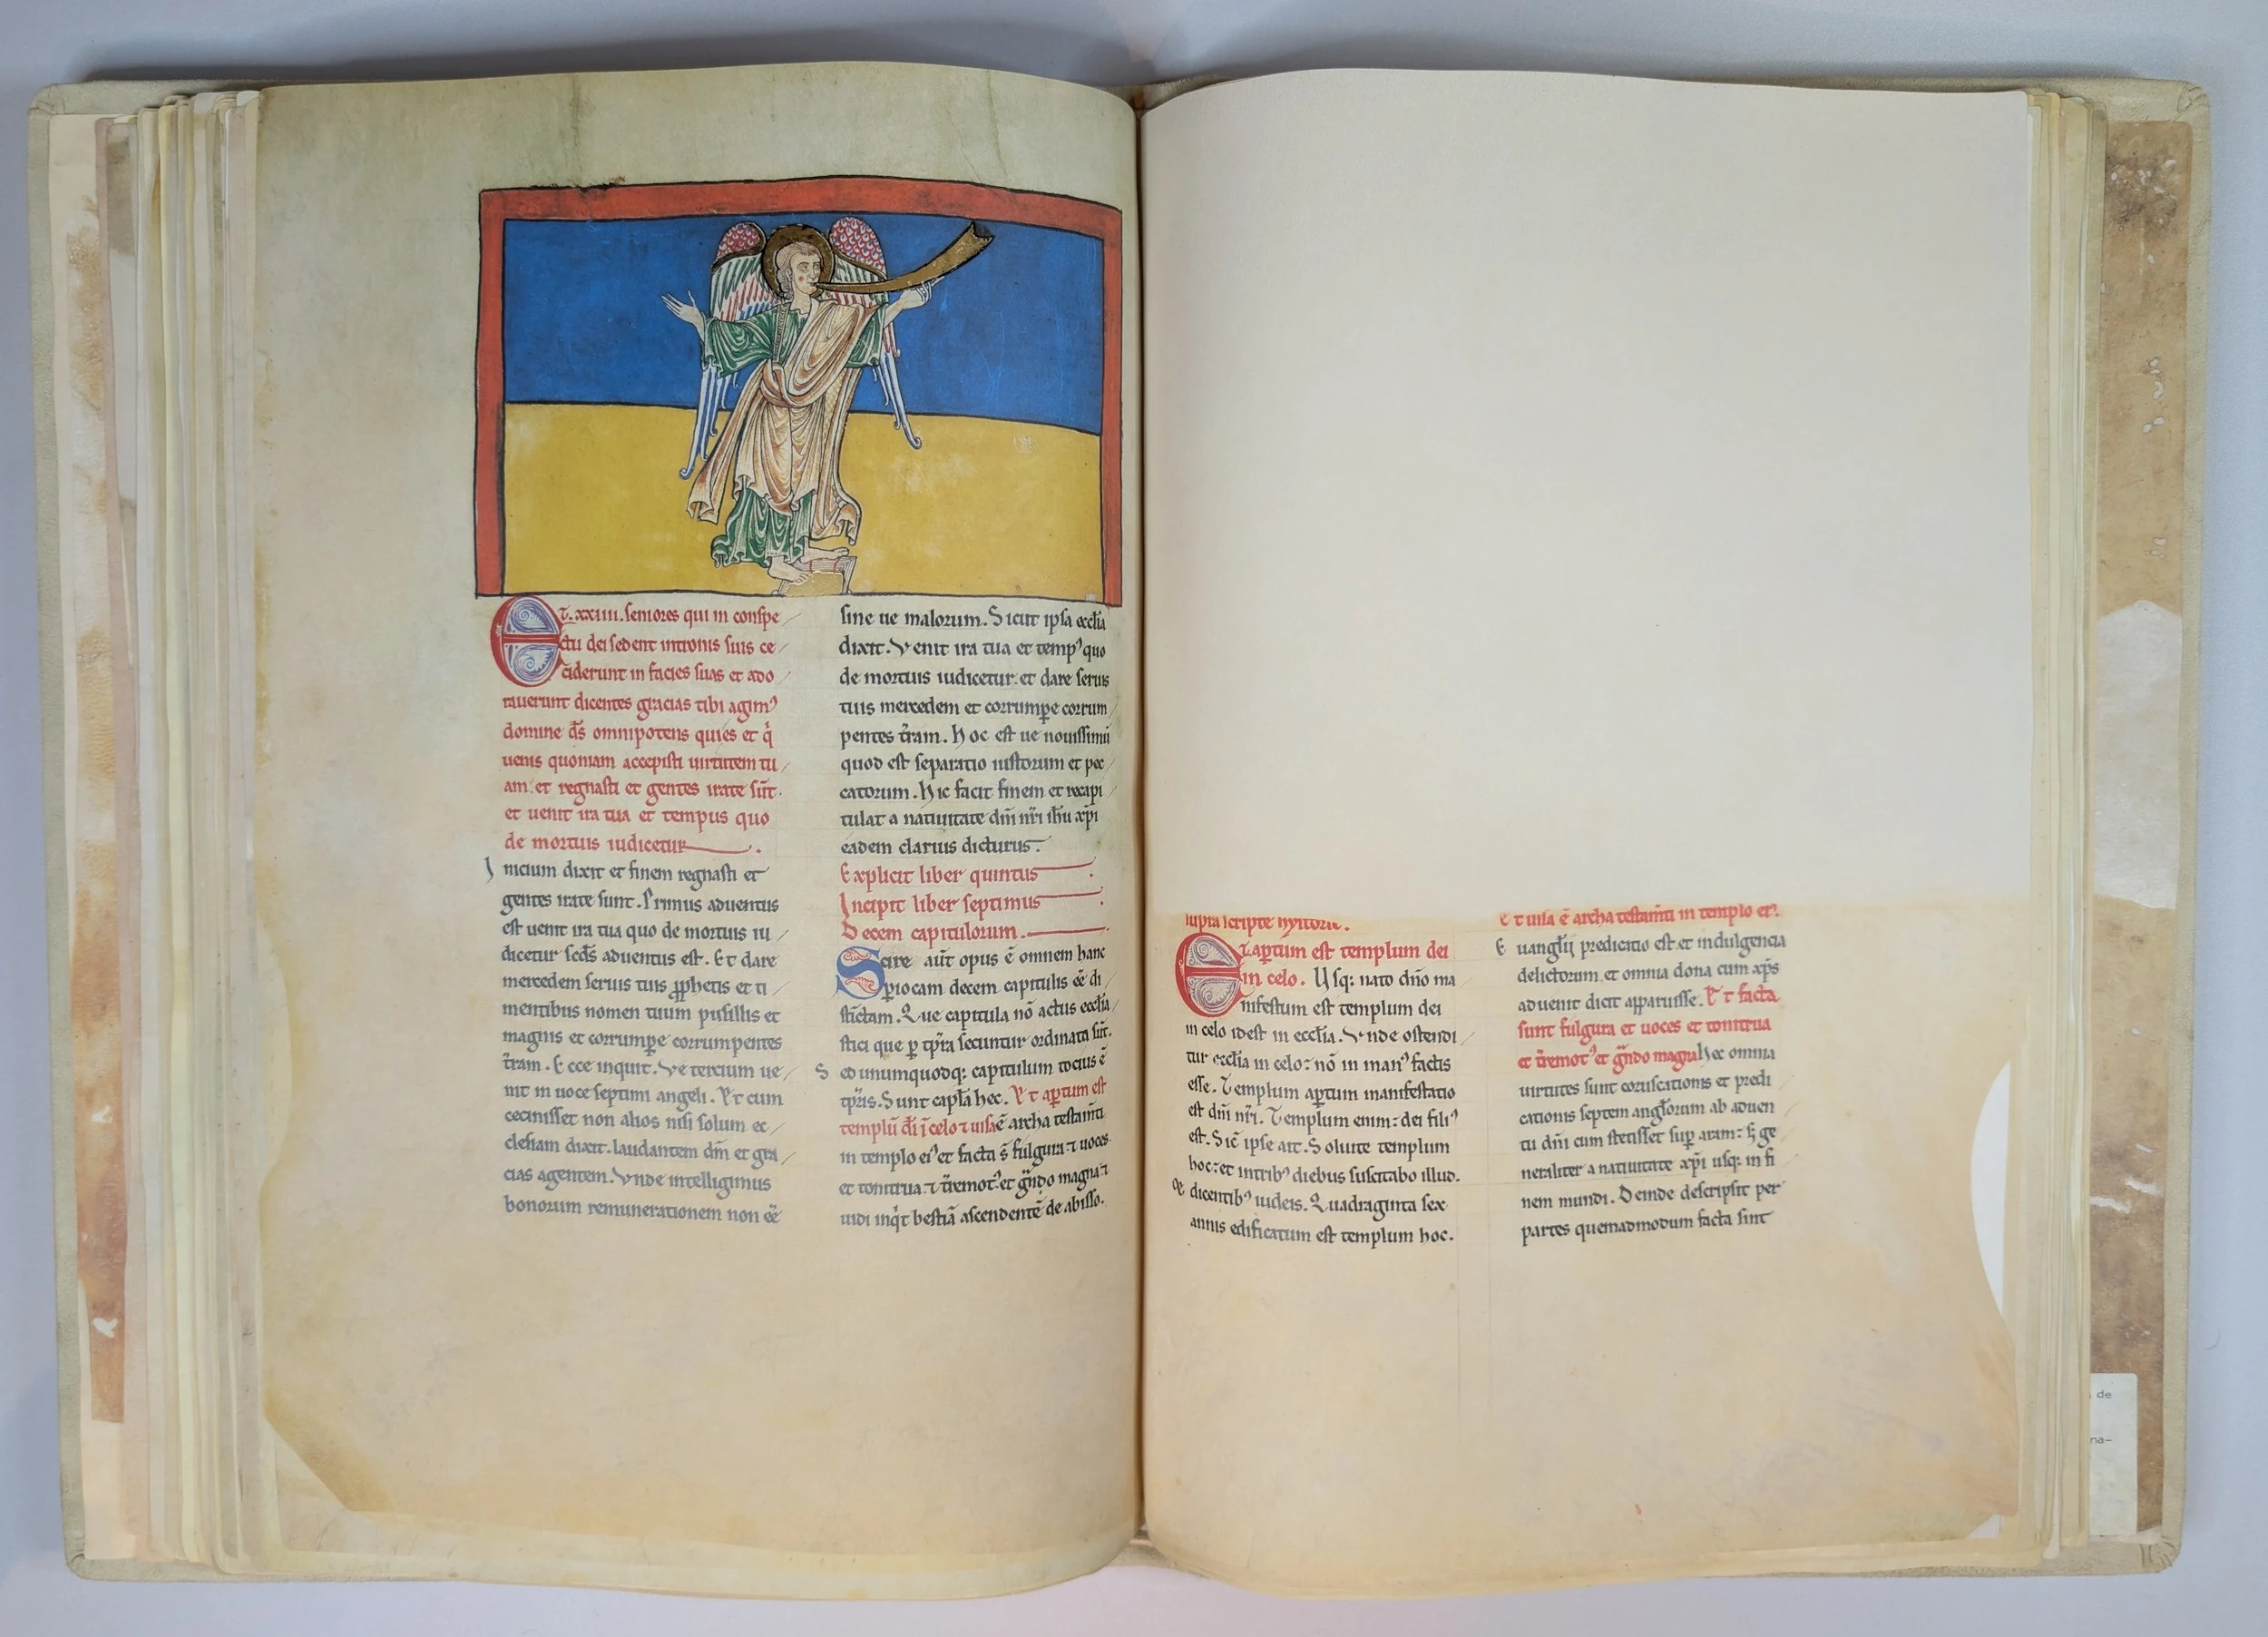 Et. xxiiii. seniores qui in conspe
ctu dei sedent in tronis suis ce
ciderunt in facies suas et ado
rauerunt dicentes gracias tibi agimꝰ
domine d̄s omnipotens qui es et q̇
uenis quoniam accepisti uirtutem tu
am. et regnasti et gentes irate sūt.
et uenit ira tua et tempus quo
de mortuis iudicetur.
Inicium dixit et finem regnasti et
gentes irate sunt. Primus aduentus
est uenit ira tua quo de mortuis iu
dicetur scd̄s aduentus est. Et dare
mercedem seruis tuis ꝓphetis et ti
mentibus nomen tuum pusillis et
magnis et corrumꝑe corrumpentes
t̄ram. Ecce inquit. Ve tercium ue
nit in uoce septimi angeli. Et cum
cecinisset non alios nisi solum ec
clesiam dixit. laudantem dm̄ et gra
cias agentem. Vnde intelligimus
bonorum remunerationem non eē
sine ue malorum. Sicut ipsa eccłia
dixit. Venit ira tua et tempꝰ quo
de mortuis iudicetur. et dare seruis
tuis mercedem et corrumꝑe corrum
pentes t̄ram. Hoc est ue nouissimū
quod est separatio iustorum et pec
catorum. Hic facit finem et recapi
tulat a natiuitate dn̄i nr̄i ih̄u xp̄i
eadem clarius dicturus.
Explicit liber quintus.
Incipit liber septimus.
Decem capitulorum.
Scire aūt opus ē omnem hanc
ꝑiocam decem capitulis eē di
stīctam. Que capitula nō actus eccłia
stici que ꝑ tp̄ra secuntur ordinata sūt.
Sed unumquodq: capitulum tocius ē
tp̄ris. Sunt capła hec. Et aꝑtum est
templū d̄i ī celo ⁊ uisa ē archa testam̄ti
in templo eiꝰ et facta s̄ fulgura ⁊ uoces
et tonitrua ⁊ t̄remotꝰ et g̃ndo magna ⁊
uidi inq̇t bestiā ascendentē de abisso.
supra scripte hystorie.
Et aꝑtum est templum dei
in celo. Usq: nato dn̄o ma
nifestum est templum dei
in celo idest in eccłia. Vnde ostendi
tur eccłia in celo: nō in manꝰ factis
esse. Templum aꝑtum manifestatio
est dn̄i nr̄i. Templum enim: dei filiꝰ
est. Sic̄ ipse ait. Soluite templum
hoc: et in tribꝰ diebus suscitabo illud.
dicentibꝰ iudeis. Quadraginta sex
annis edificatum est templum hoc.
Et uisa ē archa testam̄ti in templo eiꝰ.
Euangłii predicatio est. et indulgencia
delictorum. et omnia dona cum xp̄s
aduenit dicit apparuisse. Et facta
sunt fulgura et uoces et tonitrua
et t̄remotꝰ et g̃ndo magna. hec omnia
uirtutes sunt coruscationis et predi
cationis septem angłorum ab aduen
tu dn̄i cum stetisset suꝑ aram: ge
neraliter a natiuitate xp̄i usq: in fi
nem mundi. Deinde descripsit per
partes quemadmodum facta sint
de
na–